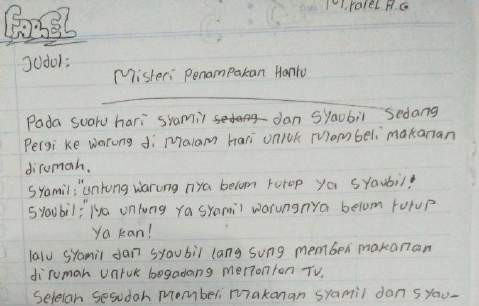 FAREL
M.Farel A.G
Judul:
Misteri Penampakan Hantu
Pada suatu hari Syamil sedang dan Syaubil sedang
Pergi ke warung di malam hari untuk membeli makanan
dirumah.
Syamil: "untung warung nya belum tutup ya Syaubil!
Syaubil: "Iya untung ya syamil warungnya belum tutup
ya kan!
lalu syamil dan syaubil lang sung membeli makanan
di rumah untuk begadang menonton TV.
Setelah sesudah membeli makanan syamil dan syau-